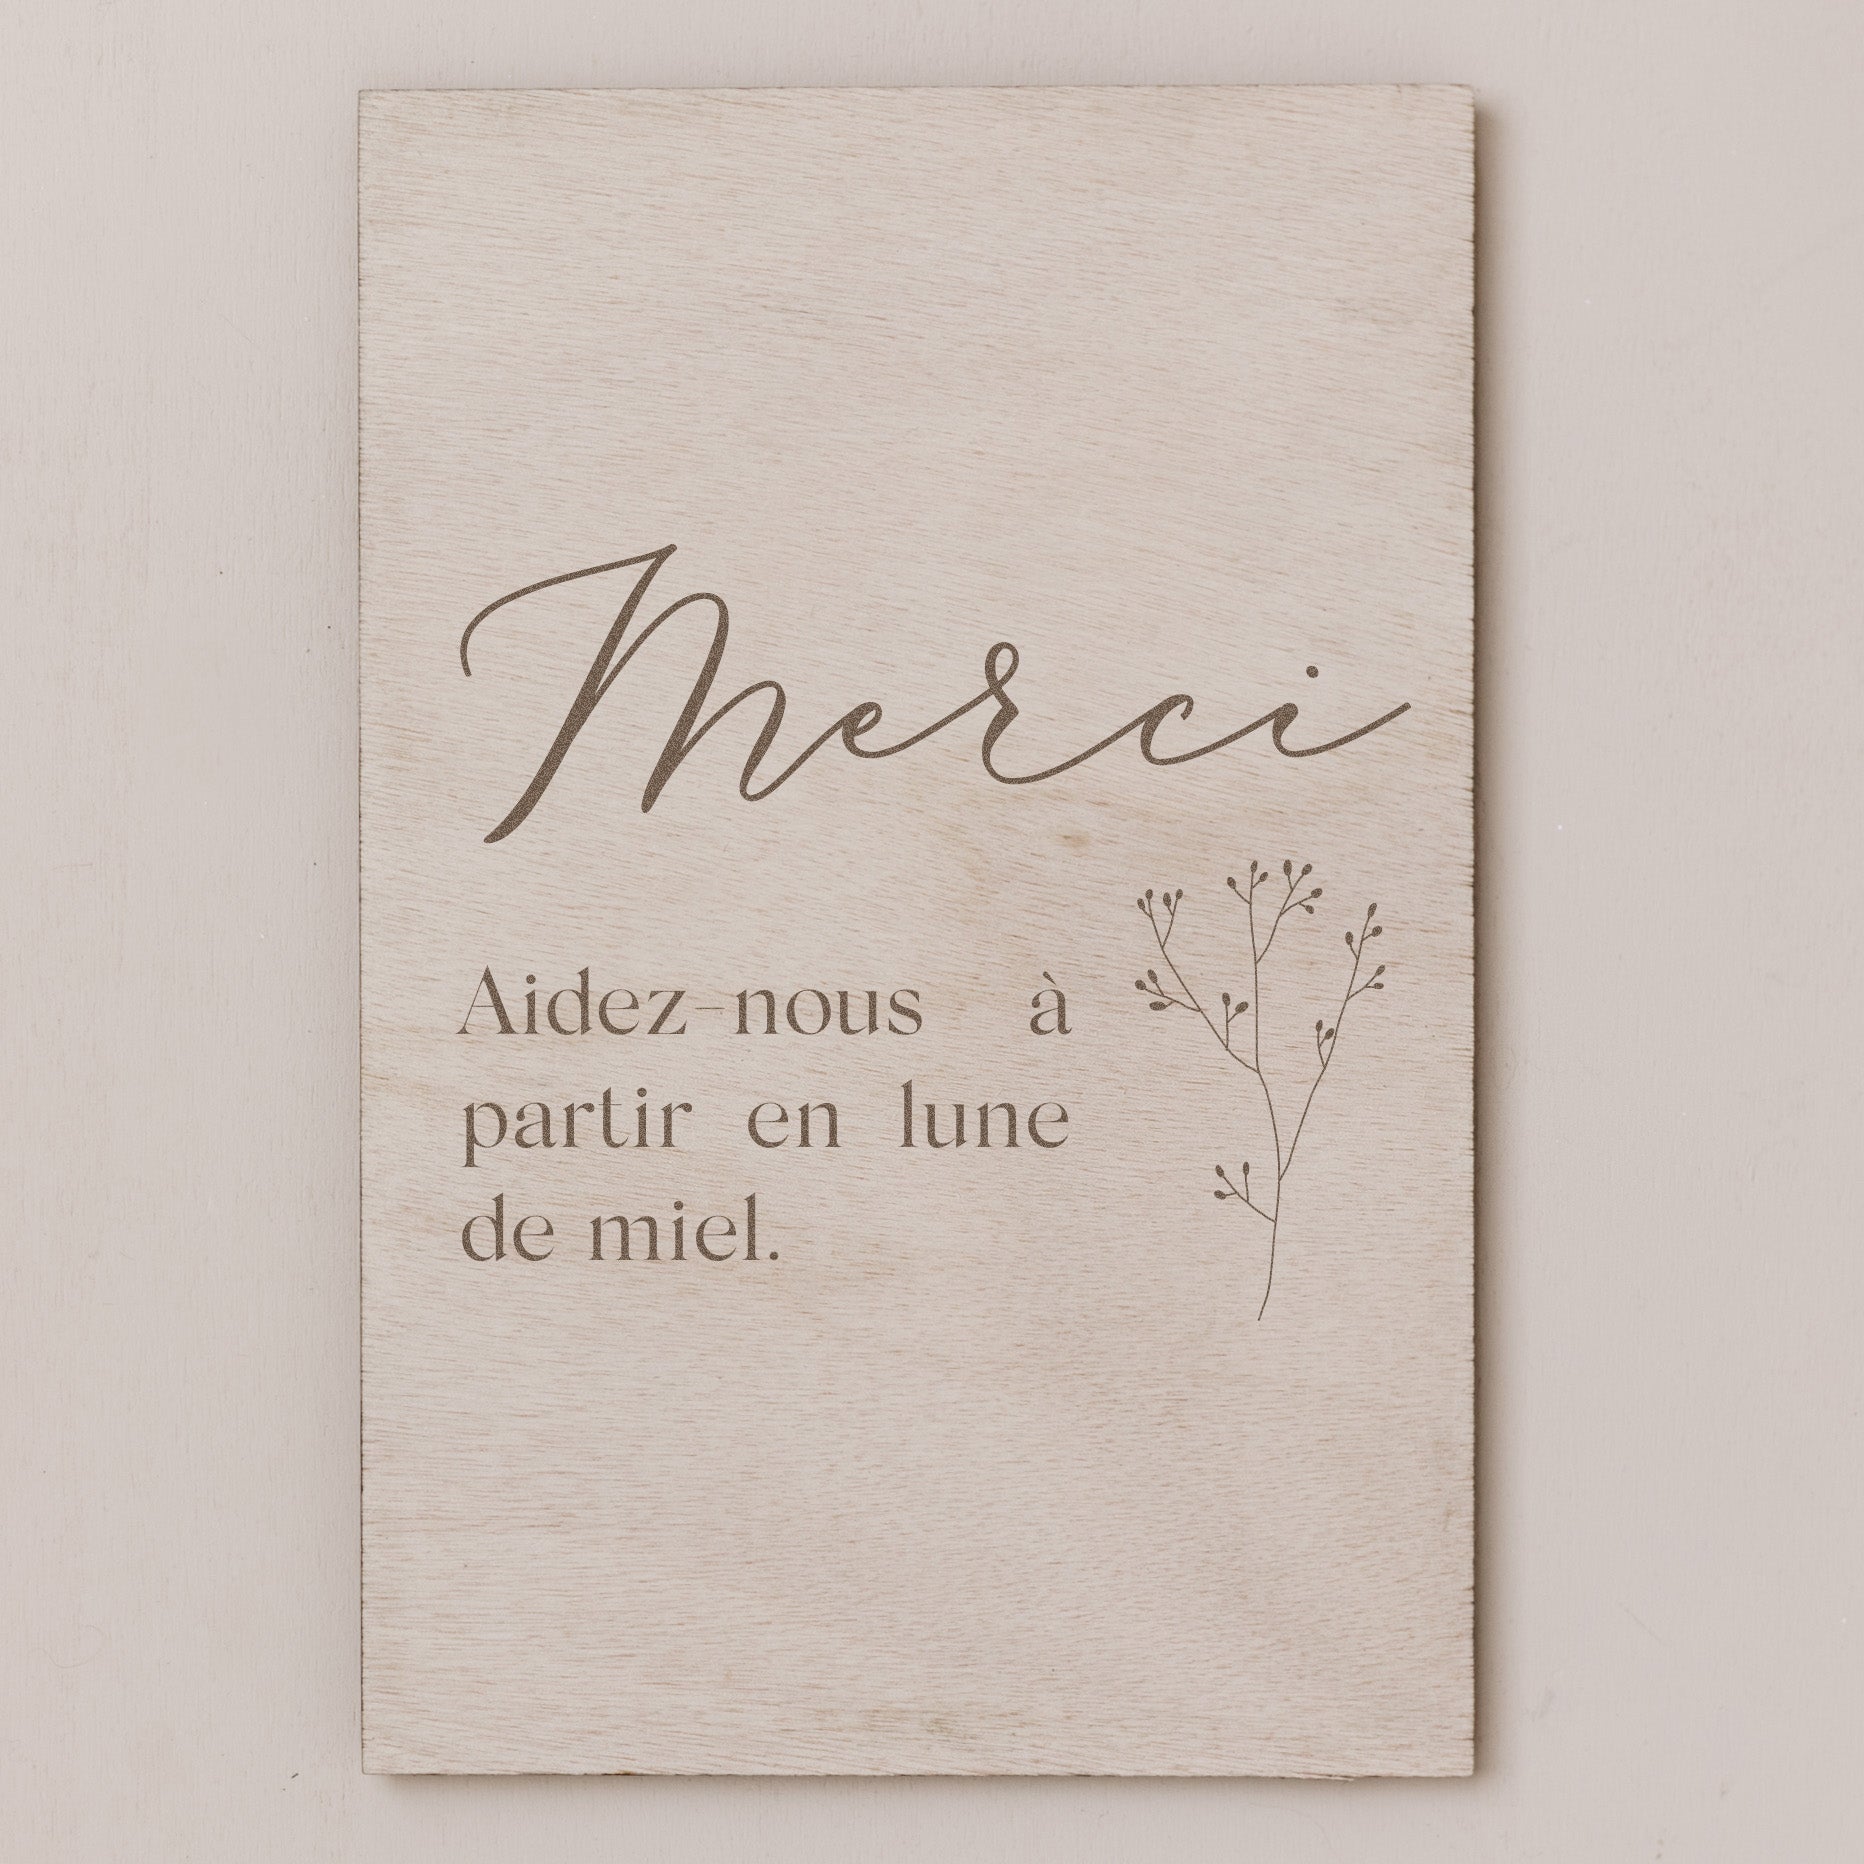 Merci
Aidez-nous à
partir en lune
de miel.